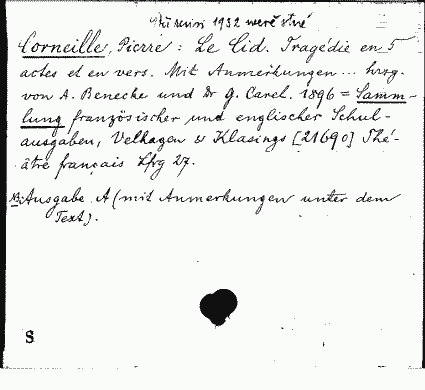 revisi 1952
Corneille, Pierre: Le Cid. Tragédie en 5
actes et en vers. Mit Anmerkungen ... hrsg.
von A. Benecke und Dr G. Carel. 1896 = Samm-
lung französischer und englischer Schul-
ausgaben, Velhagen & Klasings [21690] Thé-
âtre français Lfrg 27.
NB: Ausgabe A (mit Anmerkungen unter dem
Text).
S